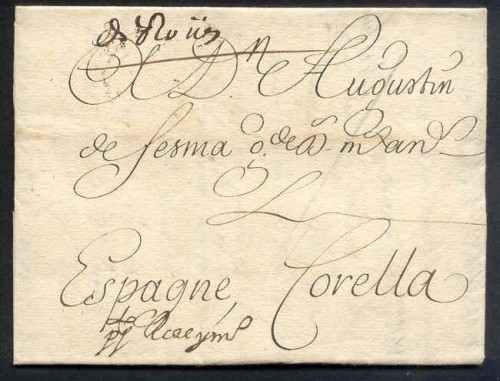 de Roüen
A D.n Augustin
de Sesma g. de D. m.s an.s
Espagne, Corella